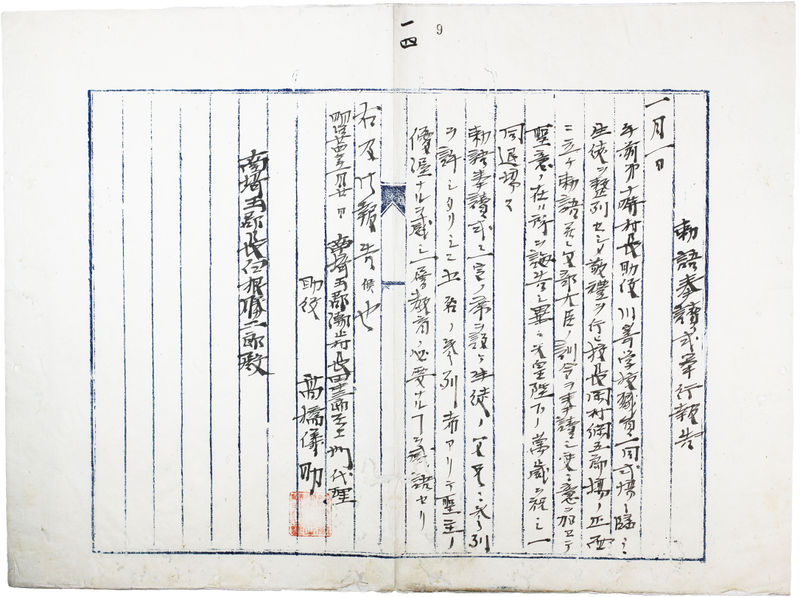 9
一四
勅語奉読式挙行報告
一月一日
午前第十時村長助役川等学校職員一同式場ニ臨ミ
生徒ヲ整列セシメ敬礼ヲ行ヒ校長岡村綱五郎場ノ正面
ニ立チ勅語並ニ文部大臣ノ訓令ヲ奉読シ更ニ意ヲ加ヘテ
聖意ノ在ル所ヲ誨告シ畢テ天皇陛下ノ萬歳ヲ祝シ一
同退場ス
勅語奉読式ニ一定ノ席ヲ設ケ生徒ノ父兄ニ参列
ヲ許シタリシニ五名ノ参列者アリテ聖主ノ
優渥ナル ニ 教育ノ必要ナルヿヲ感諾セリ
右及御報告候也
明治廿四年一月廿日 南埼玉郡 村長 代理
助役 高橋儀助
南埼玉郡長 殿